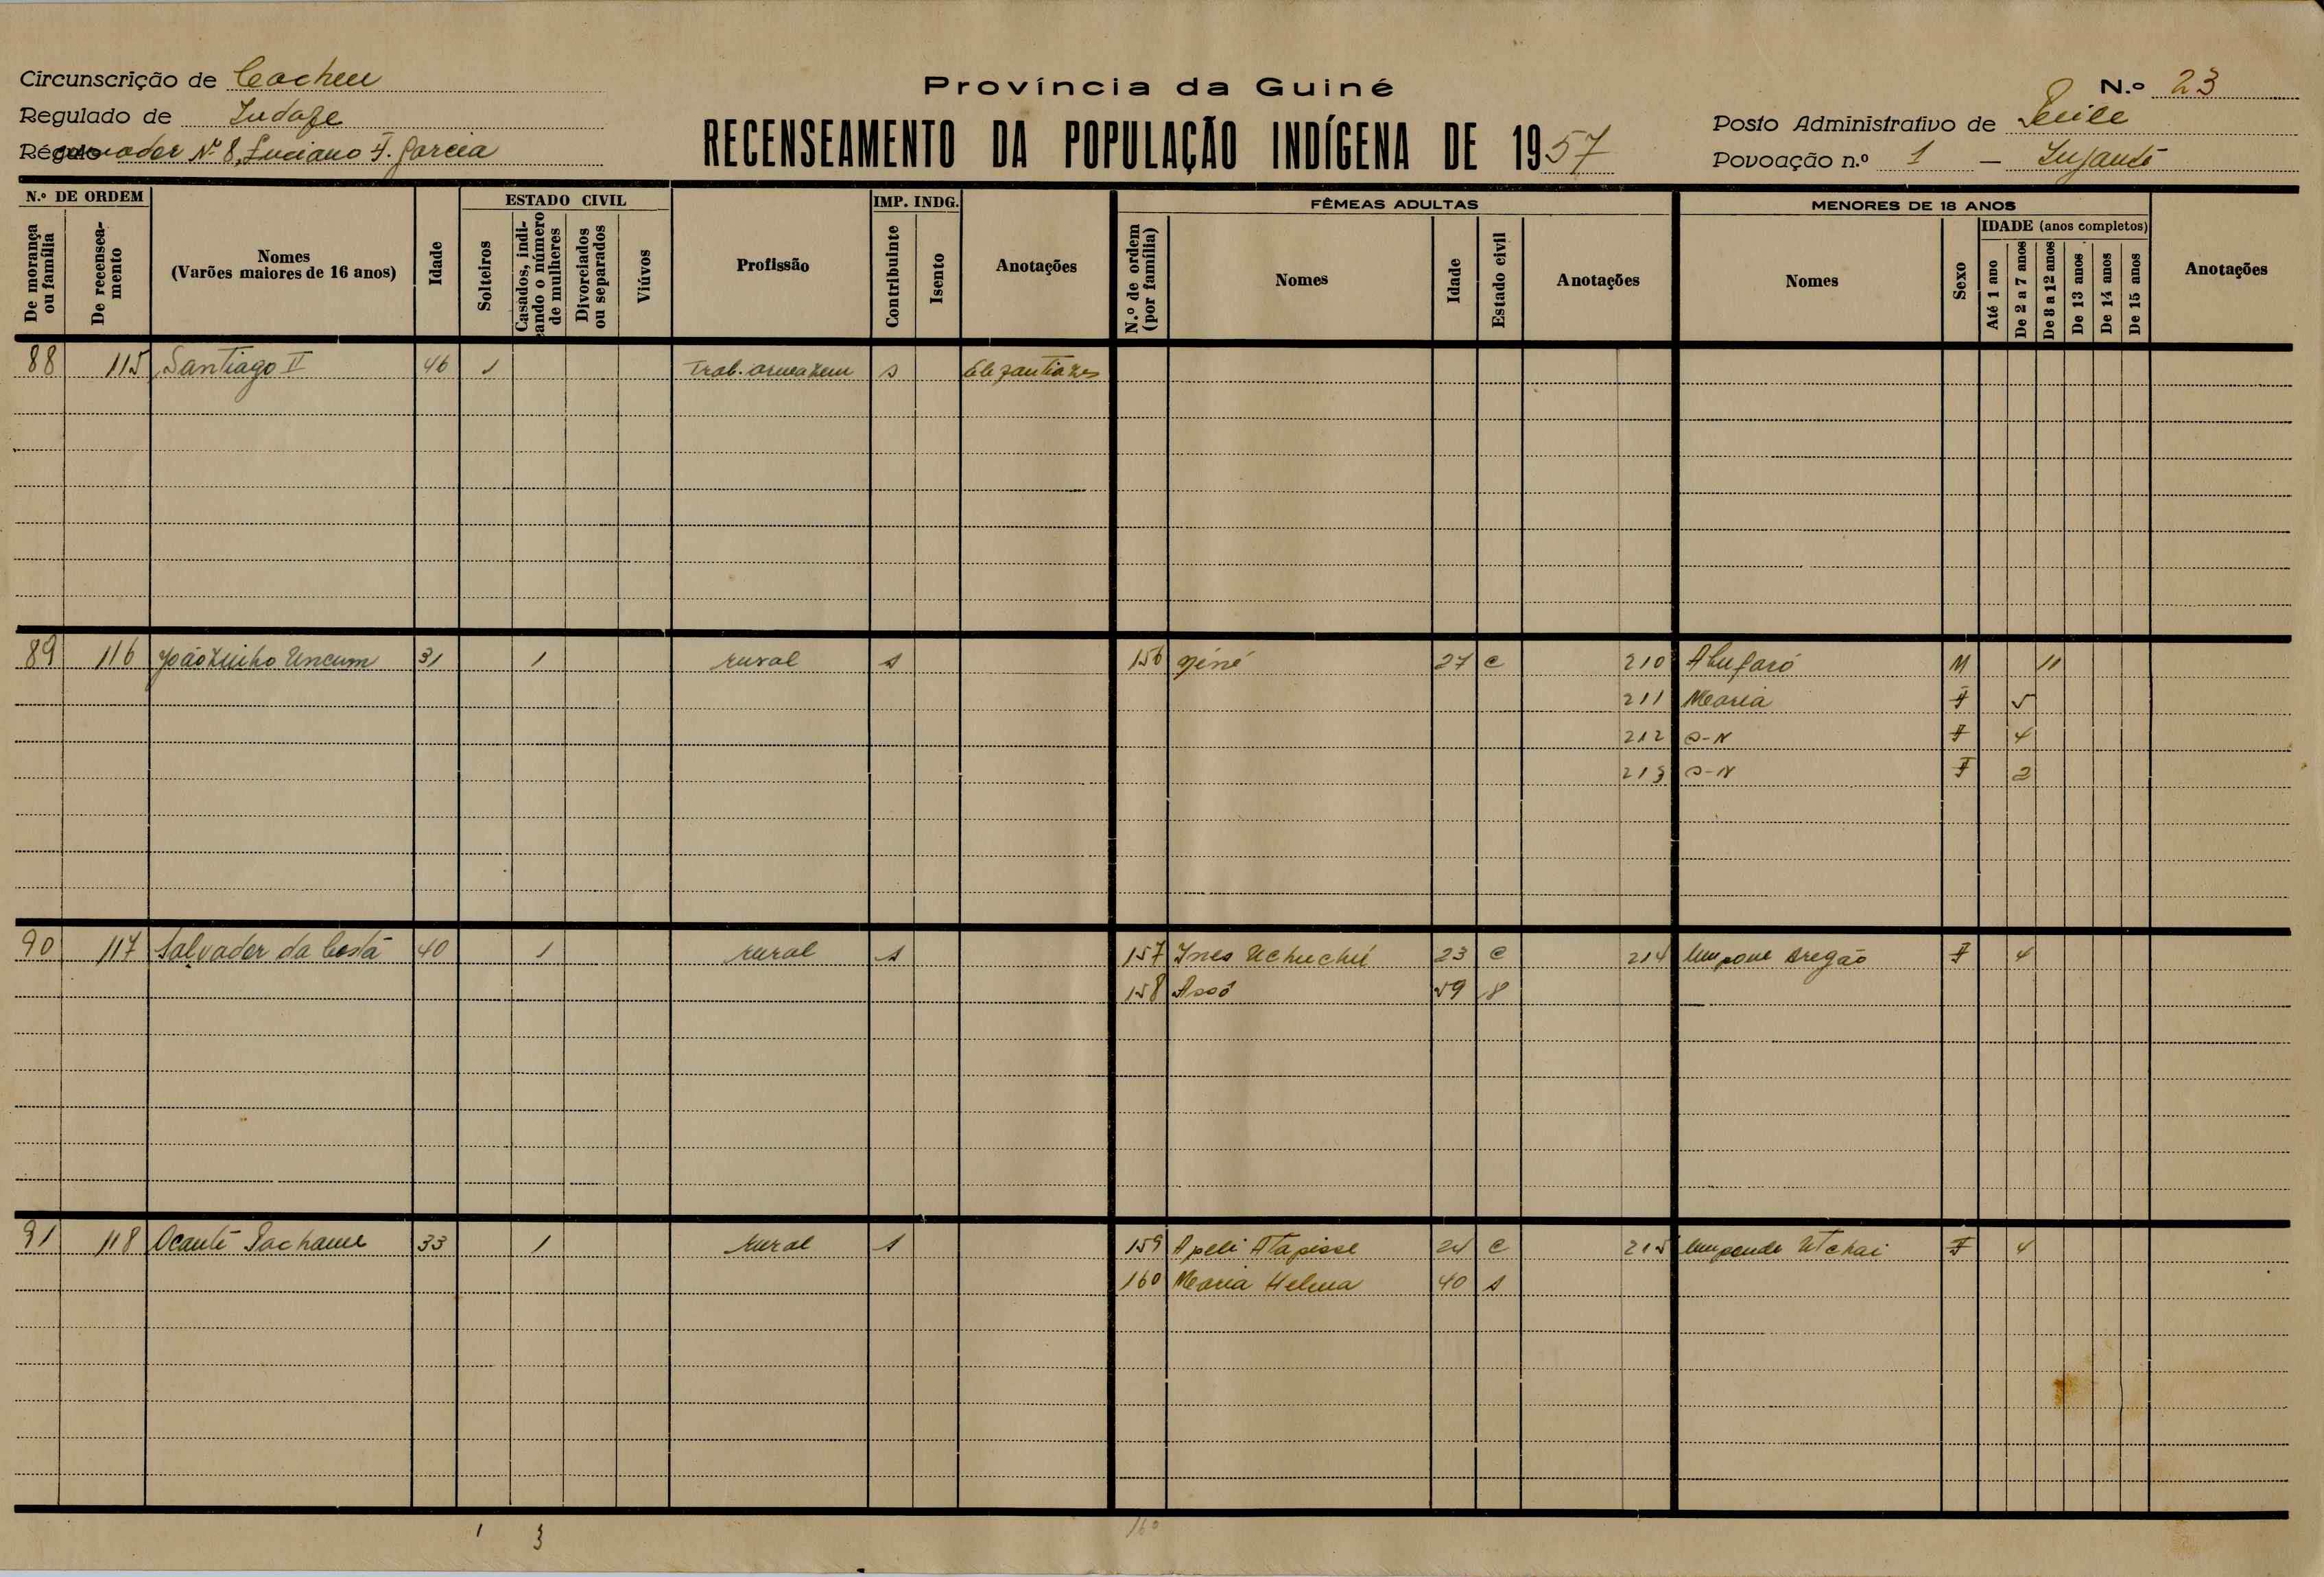 Circunscrição de Cacheu
Província da Guiné
N.º 23
Regulado de
Posto Administrativo de
RECENSEAMENTO DA POPULAÇÃO INDÍGENA DE 1957
Nº 8, Luciano F. Garcia
Povoação n.º 1 —
N.º DE ORDEM
De morança ou família
De recenseamento
Nomes
(Varões maiores de 16 anos)
Idade
ESTADO CIVIL
Solteiros
Casados, indicando o número de mulheres
Divorciados ou separados
Viúvos
Profissão
IMP. INDG.
Contribuinte
Isento
Anotações
FÊMEAS ADULTAS
N.º de ordem (por família)
Nomes
Idade
Estado civil
Anotações
MENORES DE 18 ANOS
Nomes
Sexo
IDADE (anos completos)
Até 1 ano
De 2 a 7 anos
De 8 a 12 anos
De 13 anos
De 14 anos
De 15 anos
Anotações
88 115 Santiago II 46 1 Trab. armazem s
89 116 Uncum 31 1 rural s 156 27 c 210 M 11
211 Maria F 5
212 S-N F 4
213 S-N F 2
90 117 Salvador da Costa 40 1 rural s 157 Ines Uchuchú 23 c 214 F 4
158 Assó 59
91 118 33 1 rural s 159 Apeli Atapisse 24 c 215 F 4
160 Maria Helena 40 s
1 3 160